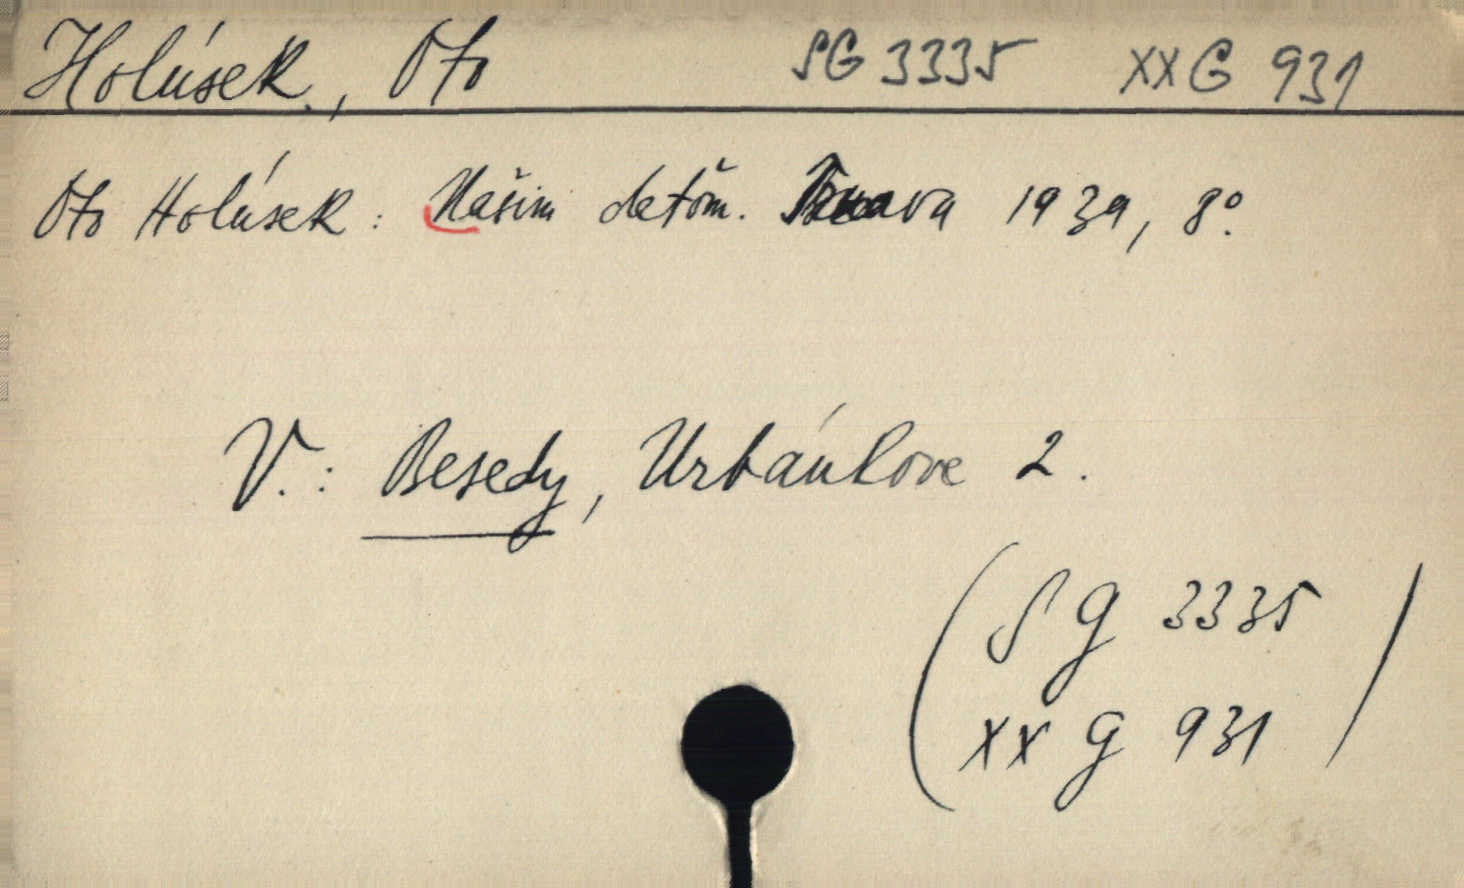 Holúsek, Oto SG 3335 XX G 931
Oto Holúsek: Našim deťom. Trnava 1939, 8°.
V.: Besedy, Urbánkove 2.
(SG 3335
XX G 931)